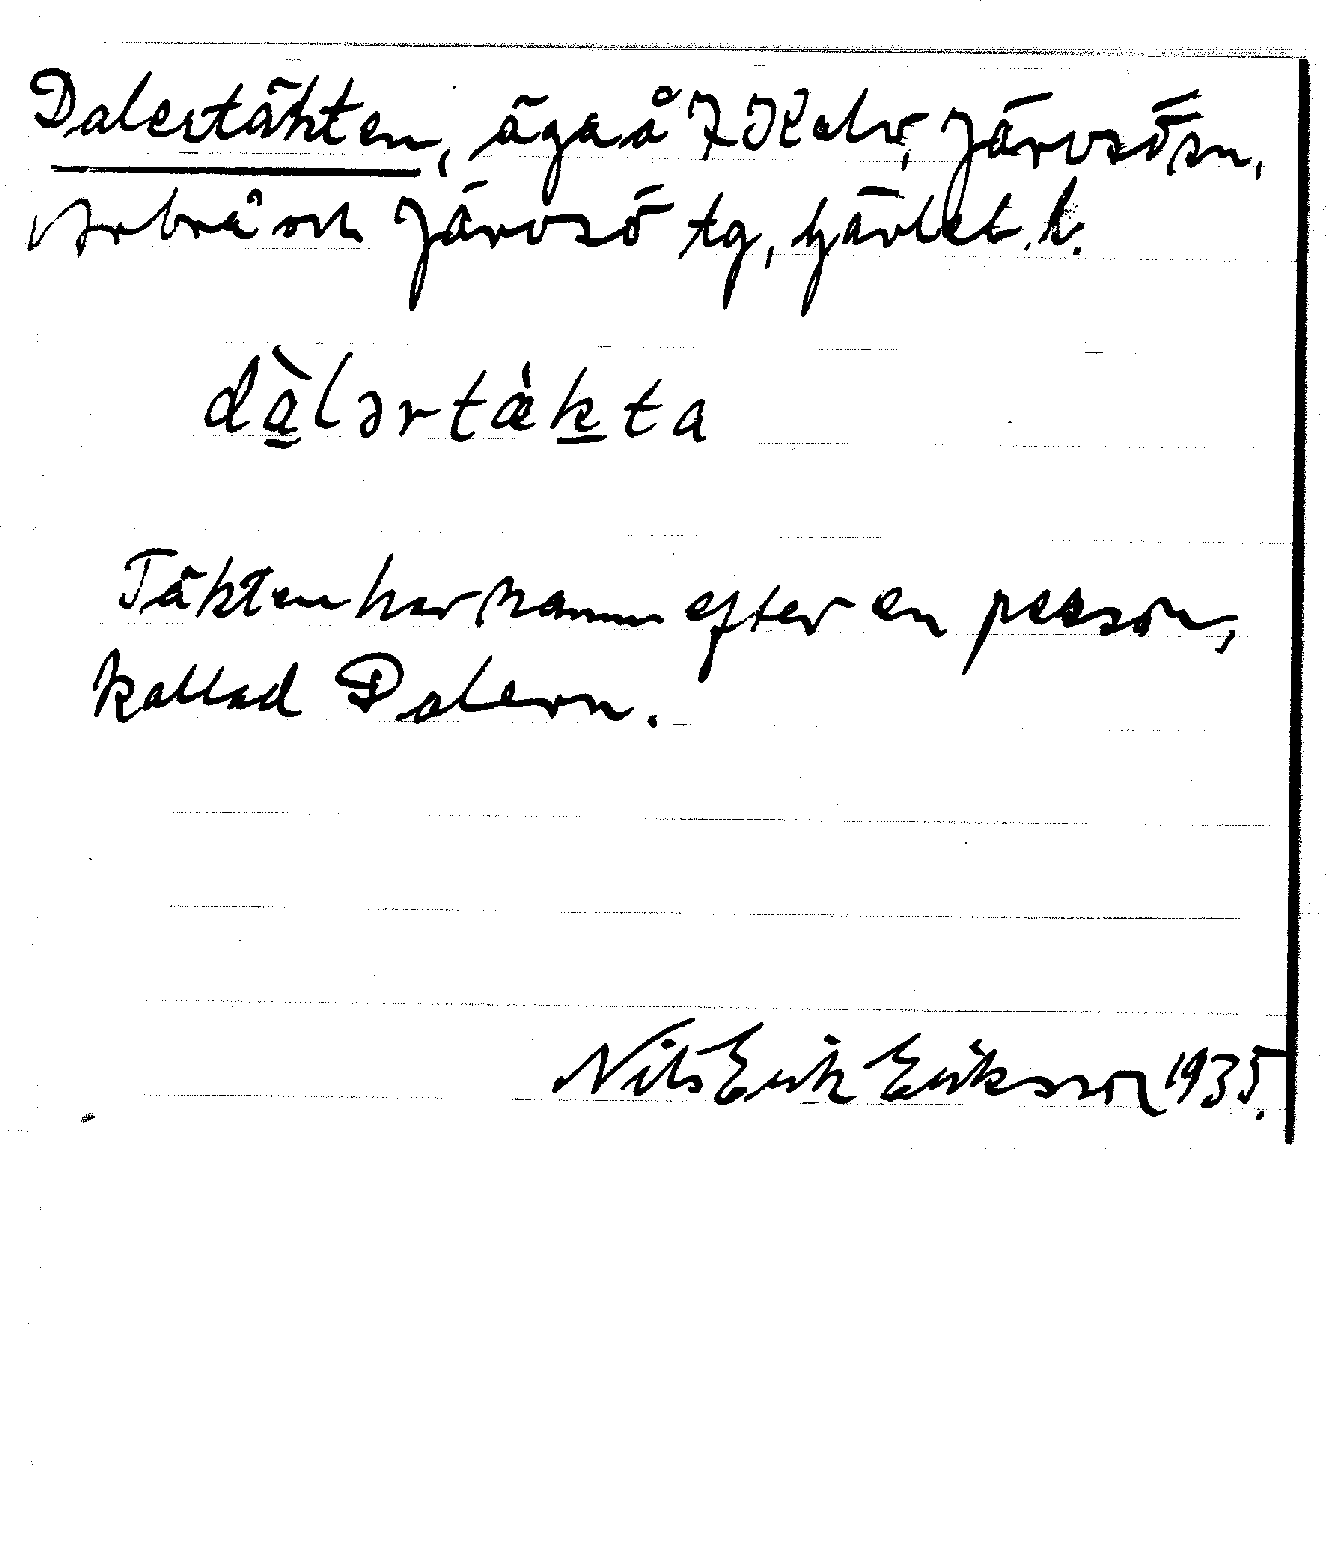 Dalertäkten, äga å 7 Kalv, Järvsö sn,
Arbrå och Järvsö tg, Gävleb. l.
dàlərtæ̀kta
Täkten har namn efter en person,
kallad Dalern.
Nils Erik Eriksson 1935.